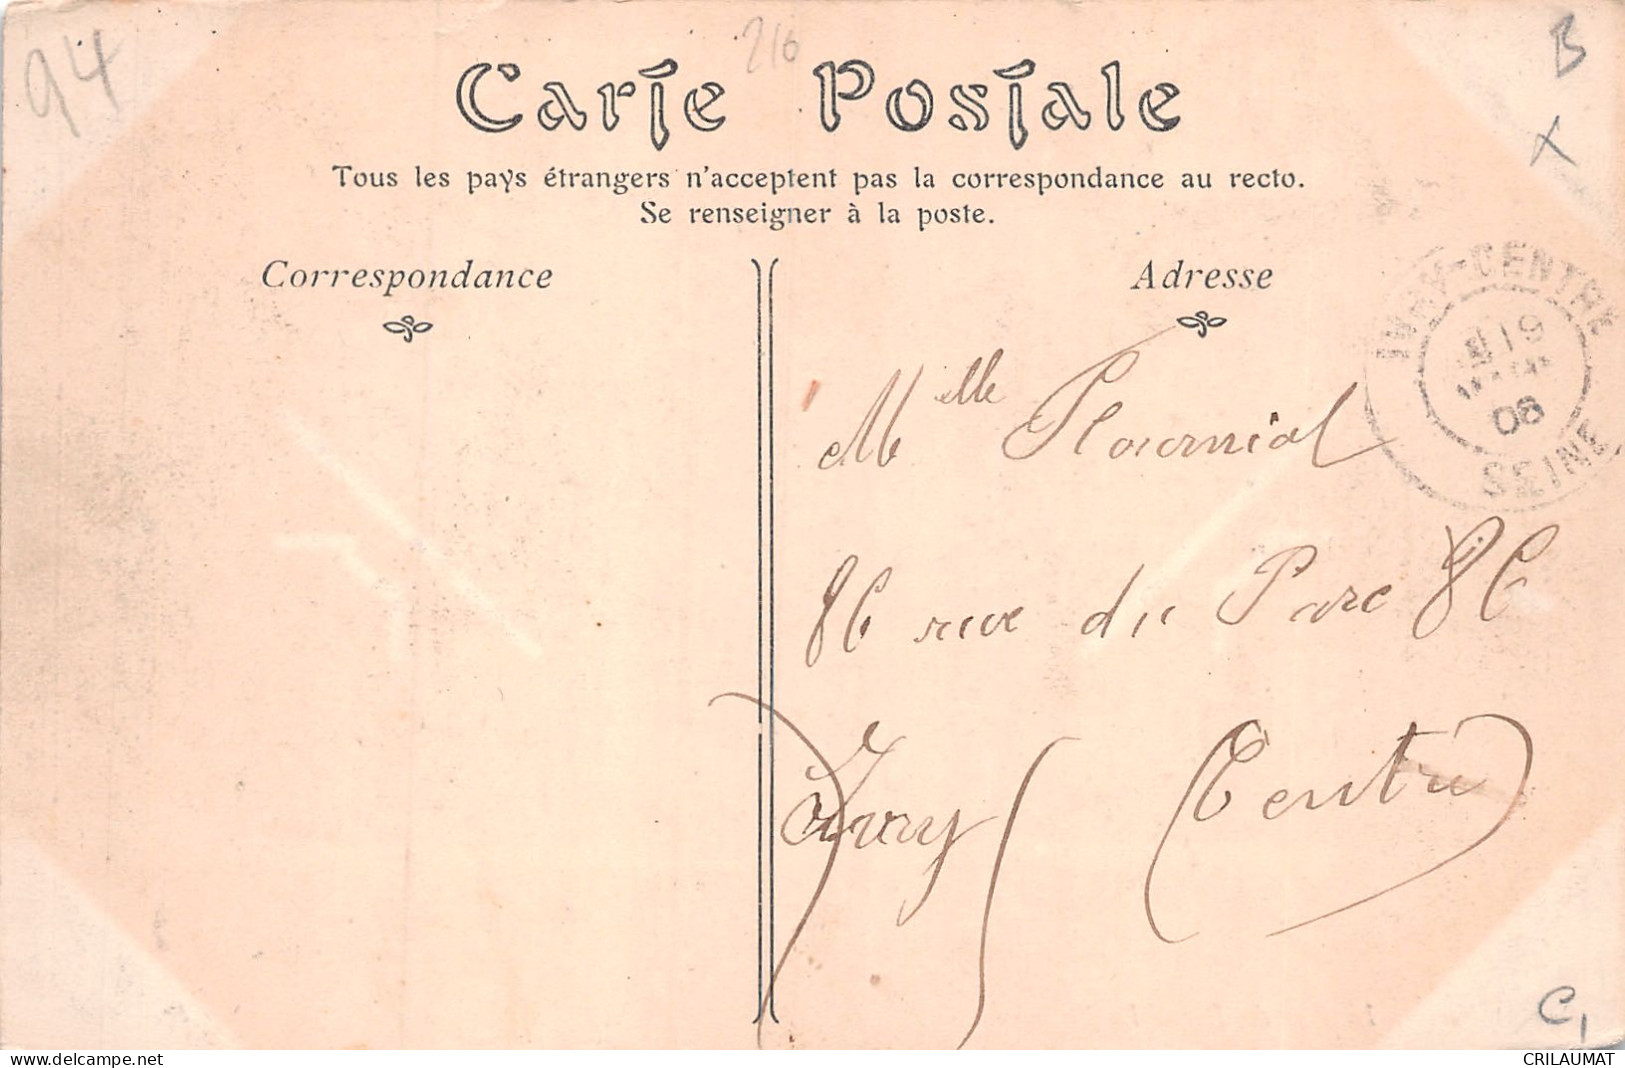 94
216
B
X
Carte Postale
Tous les pays étrangers n'acceptent pas la correspondance au recto.
Se renseigner à la poste.
Correspondance
Adresse
IVRY-CENTRE
19
08
SEINE
Mlle
86 rue du Parc 86
Ivry Centre
C1
delcampe.net
CRILAUMAT